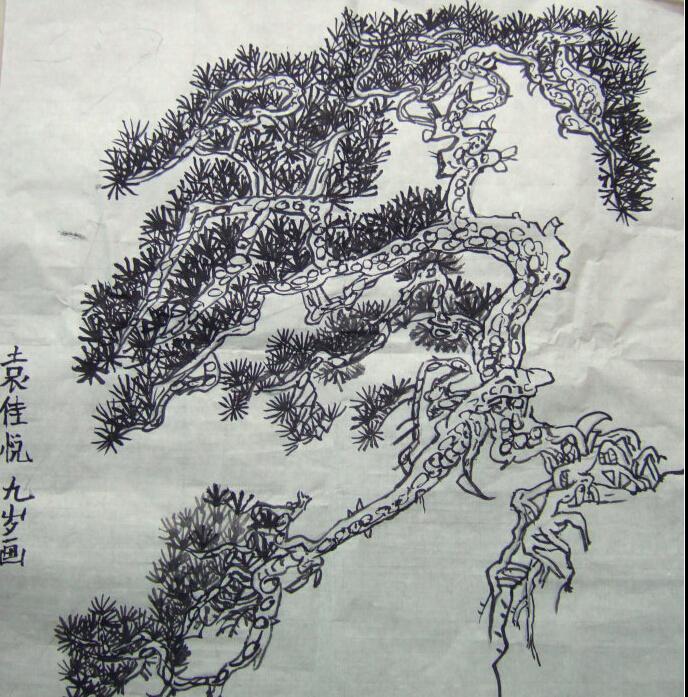 袁佳悦九岁画